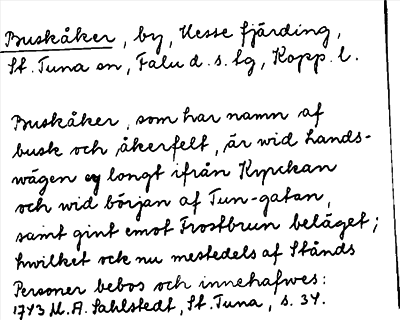 Buskåker, by, Uesse fjärding,
St. Tuna sn, Falu d. s. lg, Kopp. l.
Buskåker, som har namn af
busk och åkerfelt, är wid Lands-
wägen ey longt ifrån Kyrckan
och wid början af Tun-gatan,
samt gint emot Frostbrun beläget;
hwilket ock nu mestedels af Stånds
Personer bebos och innehafwes:
1743 M. A. Sahlstedt, St. Tuna, s. 34.